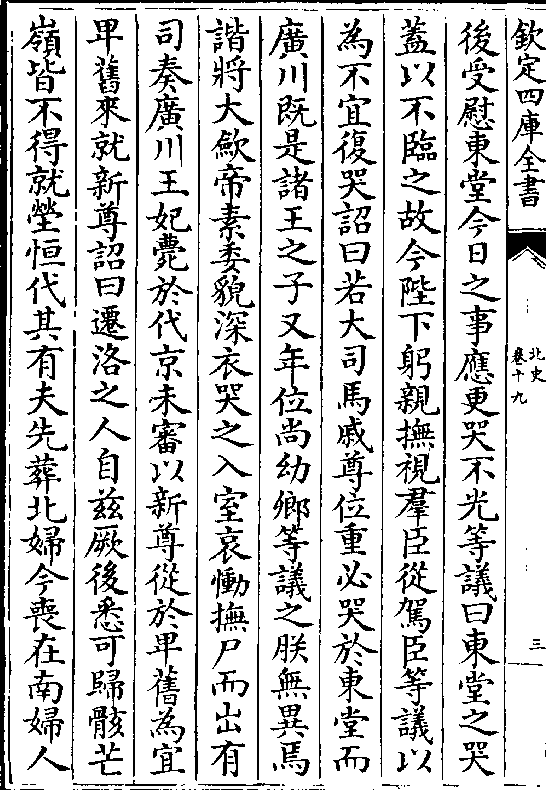 欽定四庫全書
北史
卷十九
三
後受慰東堂今日之事應更哭不光等議曰東堂之哭
蓋以不臨之故今陛下躬親撫視羣臣從駕臣等議以
為不宜復哭詔曰若大司馬戚尊位重必哭於東堂而
廣川既是諸王之子又年位尚幼鄉等議之朕無異焉
諧將大歛帝素委貌深衣哭之入室哀慟撫尸而出有
司奏廣川王妃薨於代京未審以新尊從於卑舊為宜
卑舊來就新尊詔曰遷洛之人自兹厥後悉可歸骸芒
嶺皆不得就塋恒代其有夫先葬北婦今喪在南婦人